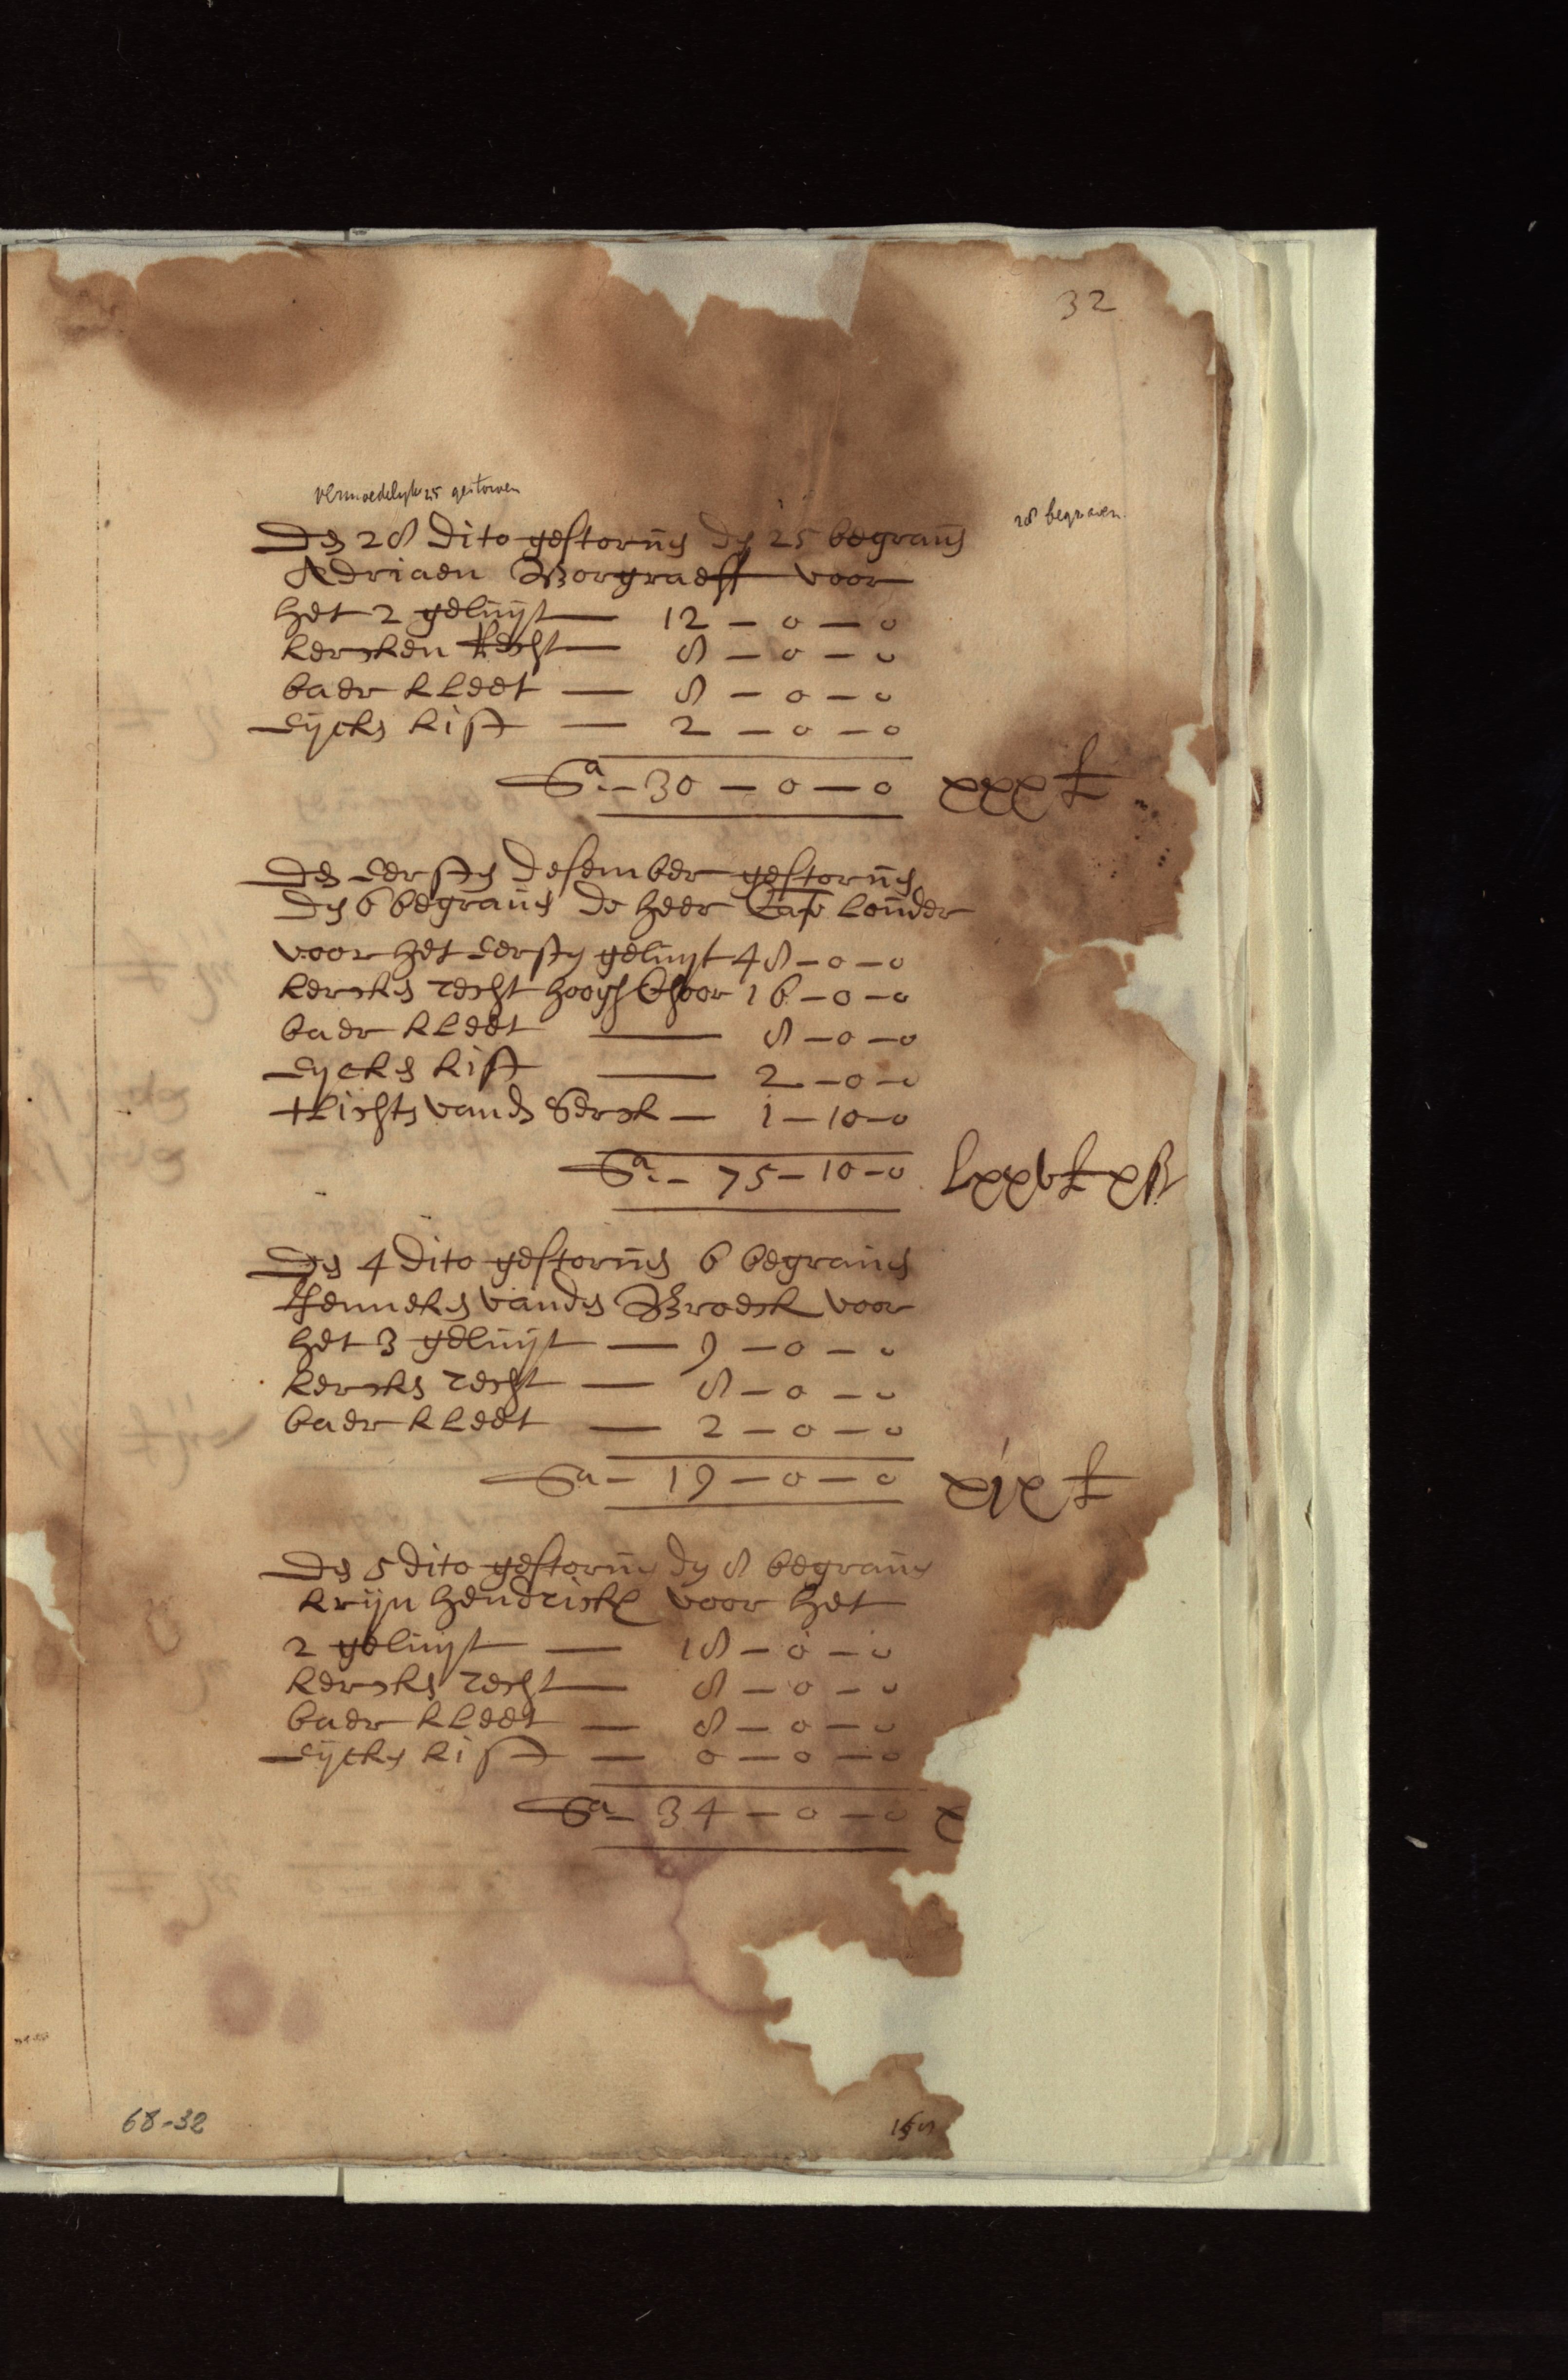 32
vermoedelyk 25 gestorven
28 begraven.
Den 28 dito gestorven den 25 begraven
Adriaen Borgraeff voor
het 2 geluijt — 12 — 0 — 0
kercken recht — 8 — 0 — 0
baer kleet — 8 — 0 — 0
Eijcken kist — 2 — 0 — 0
Sa. — 30 — 0 — 0 xxx £
Den Eersten desember gestorven
den 6 begraven de heer Cap louder
voor het eersten geluijt 48 — 0 — 0
kercken recht hooch Choor 16 — 0 — 0
baer kleet — 8 — 0 — 0
Eycken kist — 2 — 0 — 0
tlichten vanden Serck — 1 — 10 — 0
Sa. — 75 — 10 — 0 lxxv £ x ß
Den 4 dito gestorven 6 begraven
Jenneken vanden Broeck voor
het 3 geluijt — 9 — 0 — 0
kercken recht — 8 — 0 — 0
baer kleet — 2 — 0 — 0
Sa — 19 — 0 — 0 xix £
Den 5 dito gestorven den 8 begraven
krijn hendrickx voor het
2 geluijt — 18 — 0 — 0
kercken recht — 8 — 0 — 0
baer kleet — 8 — 0 — 0
Eijcken kist — 0 — 0 — 0
Sa — 34 — 0 — 0 x
68-32